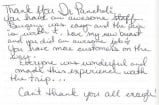 Thank You Dr. Pancholi
You have an awesome staff
guys was easy and the pain
is worth it. Love my new breast
and you did an awesome job!
You have mas customers on the
way.
Everyone was wonderful and
made this experience worth
the trip...
Can't thank you all enough!